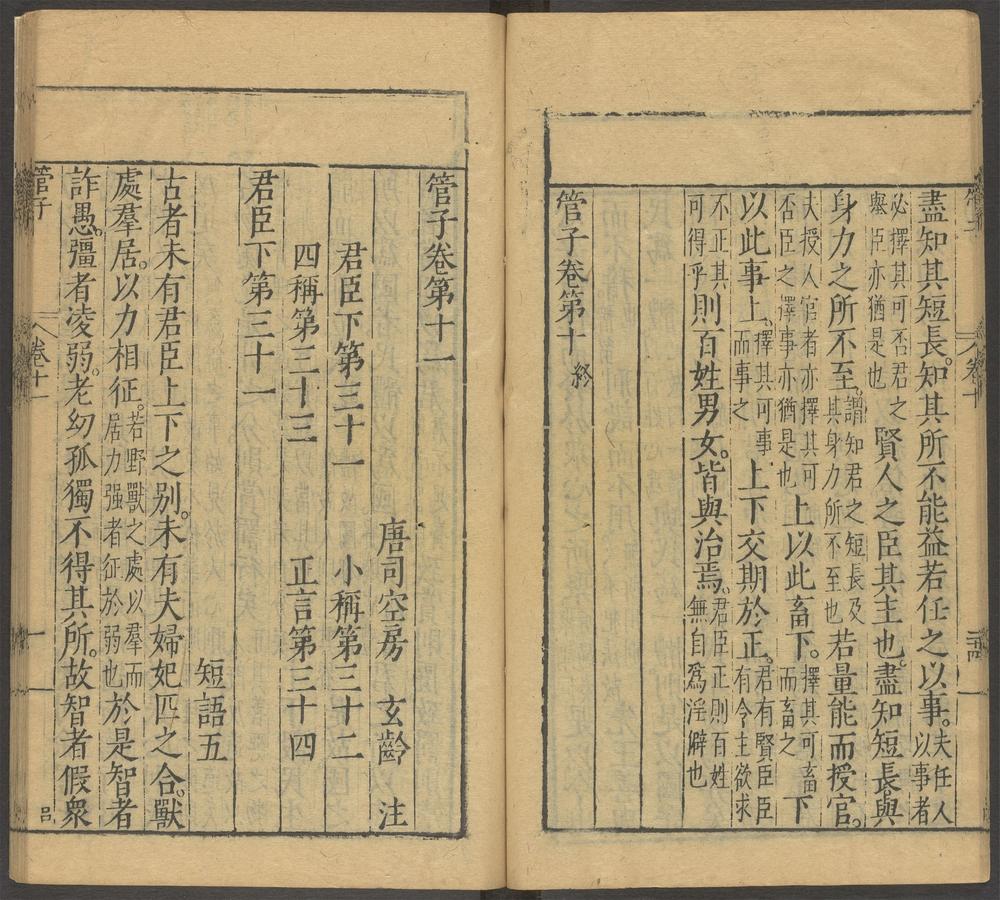 盡知其短長。知其所不能益若任之以事。夫任人以事者
必擇其可否君之舉臣亦猶是也賢人之臣其主也。盡知短長與
身力之所不至。謂知君之短長及其身力所不至也若量能而授官。
夫授人官者亦擇其可否臣之譯事亦猶是也上以此畜下。擇其可畜而畜之下
以此事上。擇其可事而事之上下交期於正。君有賢臣臣有令主欲求
不正其可得乎則百姓男女。皆與治焉。君臣正則百姓無自爲淫僻也
管子卷第十 終
管子卷第十一
唐司空房 玄齡 注
君臣下第三十一 小稱第三十二
四稱第三十三 正言第三十四
君臣下第三十一
短語五
古者未有君臣上下之別。未有夫婦妃匹之合。獸
處羣居。以力相征。若野獸之處以羣而居力强者征於弱也於是智者
詐愚。彊者凌弱。老幼孤獨不得其所。故智者假衆
管子 卷十一 一 吕